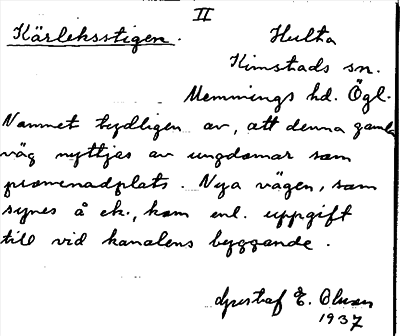 II
Kärleksstigen.
Hulta
Kimstads sn.
Memmings hd. Ögl.
Namnet tydligen av, att denna gamla
väg nyttjas av ungdomar som
promenadplats. Nya vägen, som
synes å ek., kom enl. uppgift
till vid kanalens byggande.
Gustaf E. Olsson
1937